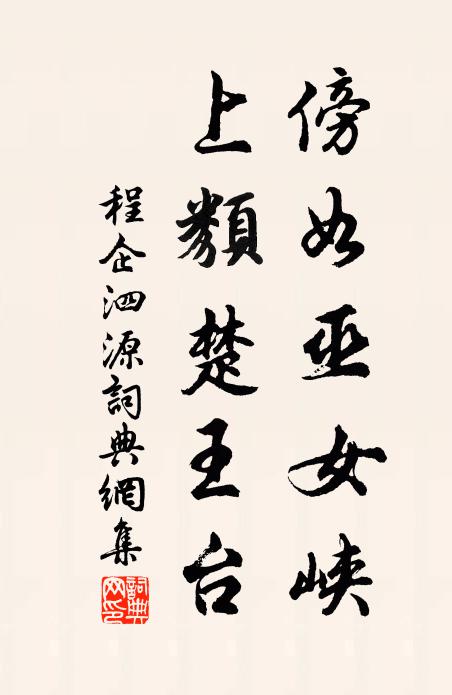 傍如巫女峽
上類楚王台
程企泗源詞典網集
詞典網印